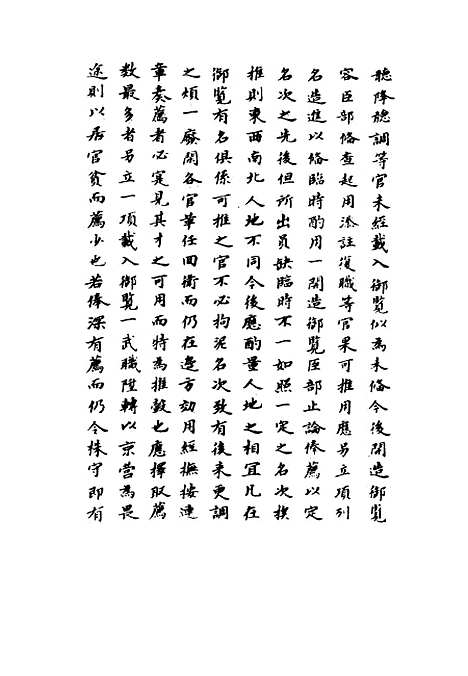 聽降聽調等官未經載入御覽似為未備今後開造御覽
容臣部備查起用添註復職等官果可推用應另立項列
名造進以備臨時酌用一開造御覽臣部止論俸薦以定
名次之先後但所出員缺臨時不一如照一定之名次挨
推則東西南北人地不同今後應酌量人地之相宜凡在
御覽有名俱係可推之官不必拘泥名次致有後來更調
之煩一廢閑各官革任回衛而仍在邊方効用經撫按連
章奏薦者必寔見其才之可用而特為推轂也應擇取薦
数最多者另立一項載入御覽一武職陞轉以京营為畏
途則以居官貧而薦少也若俸深有薦而仍令株守即有